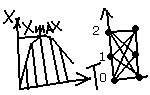 X
Xmax
T
2
1
0